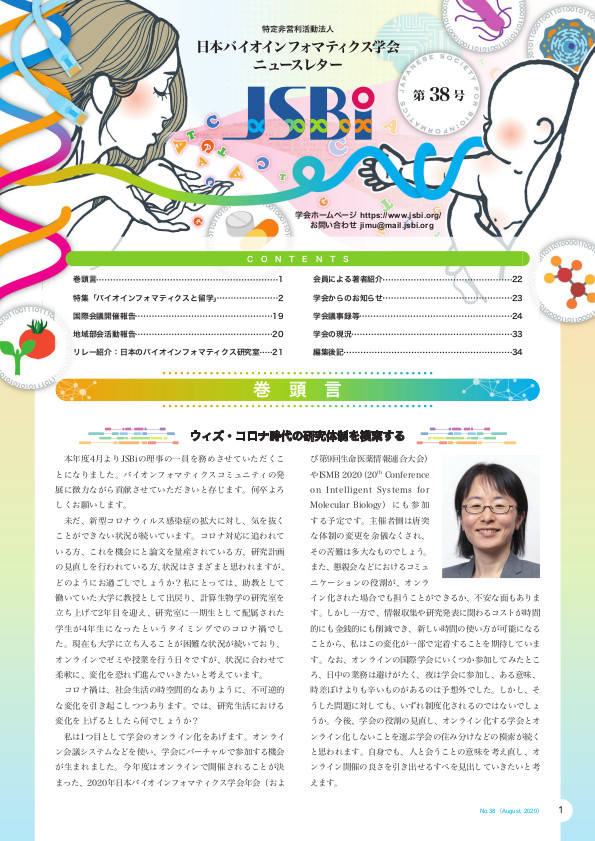 特定非営利活動法人
日本バイオインフォマティクス学会
ニュースレター
JSBi
第38号
JAPANESE SOCIETY FOR BIOINFORMATICS
学会ホームページ https://www.jsbi.org/
お問い合わせ jimu@mail.jsbi.org
CONTENTS
巻頭言…1
特集「バイオインフォマティクスと留学」…2
国際会議開催報告…19
地域部会活動報告…20
リレー紹介:日本のバイオインフォマティクス研究室…21
会員による著者紹介…22
学会からのお知らせ…23
学会議事録等…24
学会の現況…33
編集後記…34
巻頭言
ウィズ・コロナ時代の研究体制を模索する
本年度4月よりJSBiの理事の一員を務めさせていただくこ
とになりました。バイオインフォマティクスコミュニティの発
展に微力ながら貢献させていただきたいと存じます。何卒よろ
しくお願いします。
未だ、新型コロナウィルス感染症の拡大に対し、気を抜く
ことができない状況が続いています。コロナ対応に追われて
いる方、これを機会にと論文を量産されている方、研究計画
の見直しを行われている方、状況はさまざまと思われますが、
どのようにお過ごしでしょうか?私にとっては、助教として
働いていた大学に教授として出戻り、計算生物学の研究室を
立ち上げて2年目を迎え、研究室に一期生として配属された
学生が4年生になったというタイミングでのコロナ禍でし
た。現在も大学に立ち入ることが困難な状況が続いており、
オンラインでゼミや授業を行う日々ですが、状況に合わせて
柔軟に、変化を恐れず進んでいきたいと考えています。
コロナ禍は、社会生活の時空間的なありように、不可逆的
な変化を引き起こしつつあります。では、研究生活における
変化を上げるとしたら何でしょうか?
私は1つ目として学会のオンライン化をあげます。オンライ
ン会議システムなどを使い、学会にバーチャルで参加する機会
が生まれました。今年度はオンラインで開催されることが決
まった、2020年日本バイオインフォマティクス学会年会(およ
び第9回生命医薬情報連合大会)
やISMB 2020 (20th Conference
on Intelligent Systems for
Molecular Biology) にも参加
する予定です。主催者側は唐突
な体制の変更を余儀なくされ、
その苦難は多大なものでしょう。
また、懇親会などにおけるコミュ
ニケーションの役割が、オンラ
イン化された場合でも担うことができるか、不安な面もありま
す。しかし一方で、情報収集や研究発表に関わるコストが時間
的にも金銭的にも削減でき、新しい時間の使い方が可能になる
ことから、私はこの変化が一部で定着することを期待していま
す。なお、オンラインの国際学会にいくつか参加してみたとこ
ろ、日中の業務は避けがたく、夜は学会に参加し、ある意味、
時差ぼけよりも辛いものがあるのは予想外でした。しかし、そ
うした問題に対しても、いずれ制度化されるのではないでしょ
うか。今後、学会の役割の見直し、オンライン化する学会とオ
ンライン化しないことを選ぶ学会の住み分けなどの模索が続く
と思われます。自身でも、人と会うことの意味を考え直し、オ
ンライン開催の良さを引き出せるすべを見出していきたいと考
えます。
No.38 (August, 2020) 1